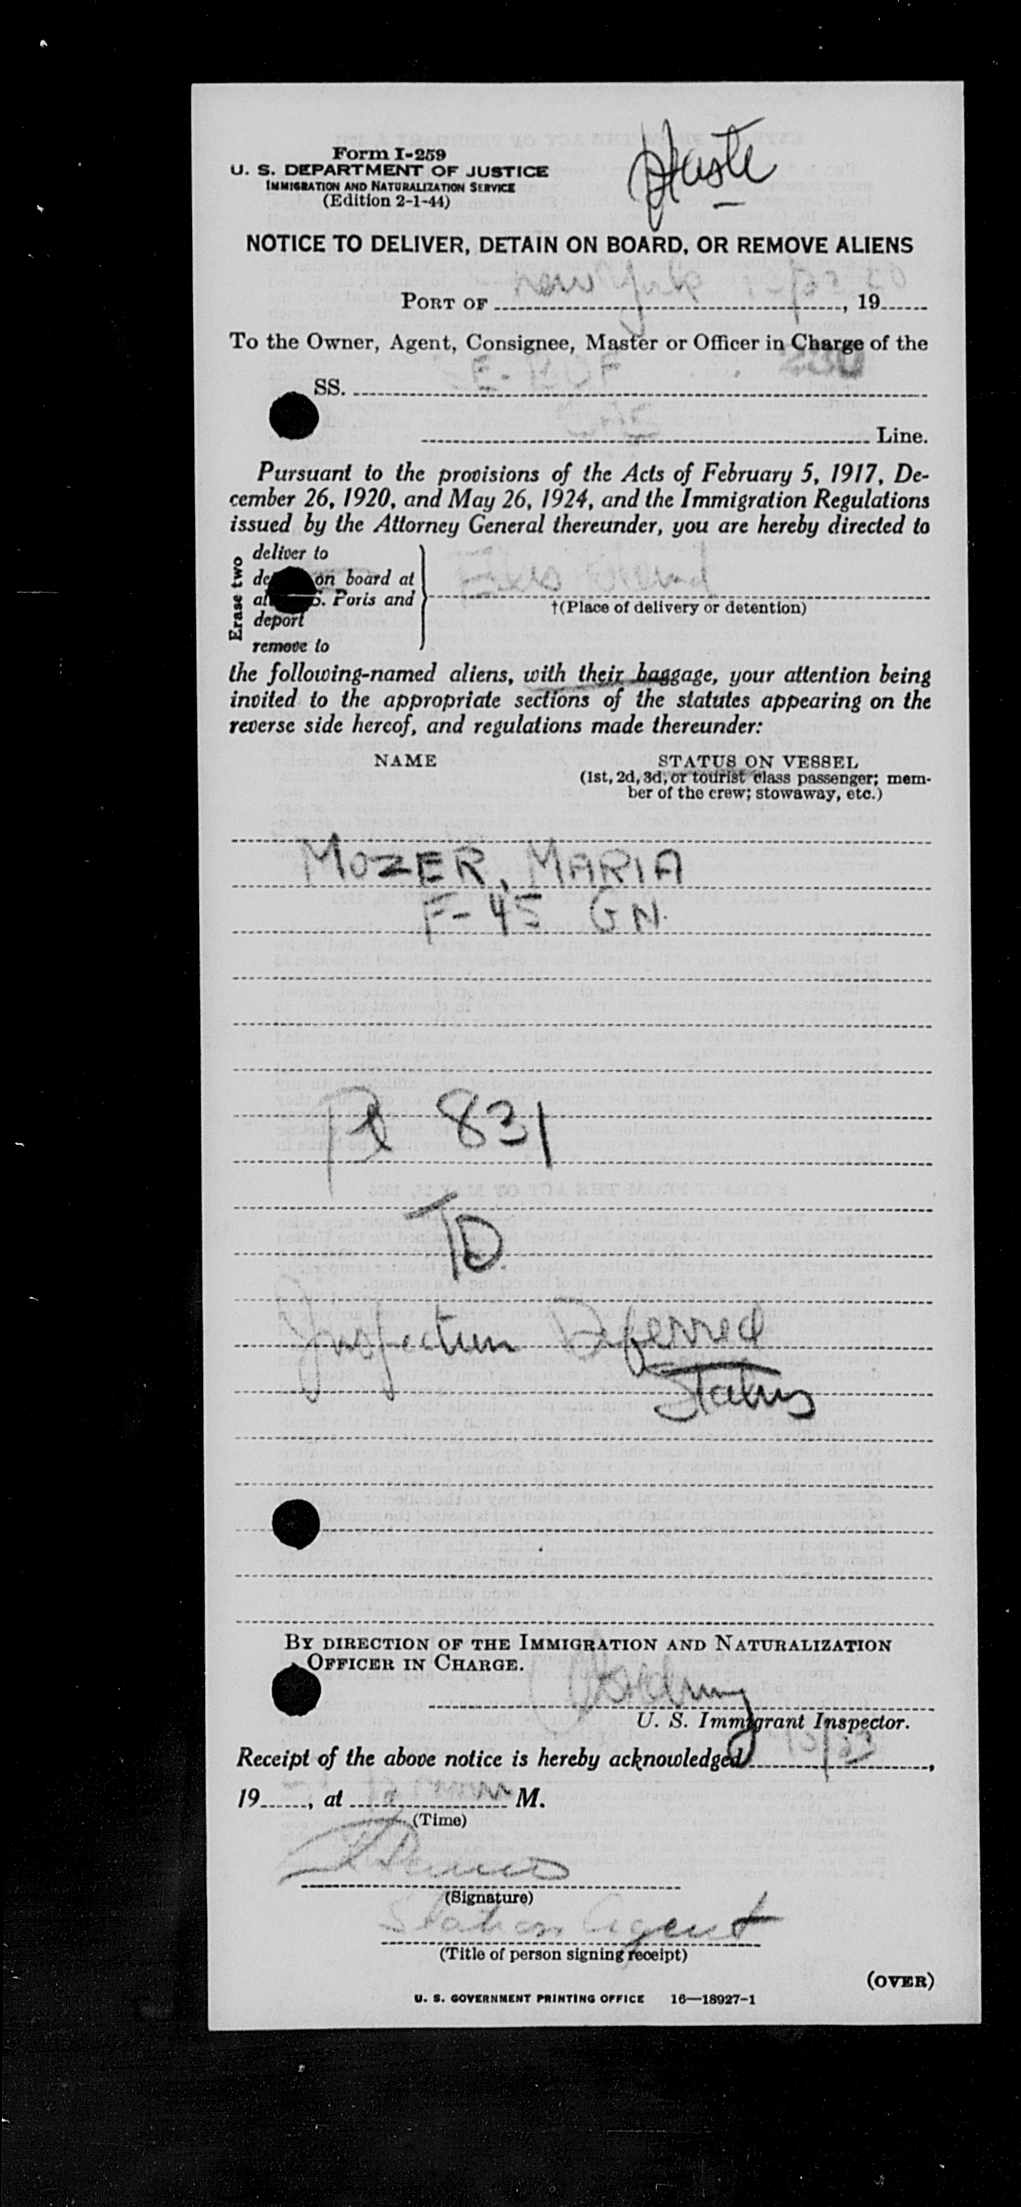 Haste
Form I-259
U. S. DEPARTMENT OF JUSTICE
IMMIGRATION AND NATURALIZATION SERVICE
(Edition 2-1-44)
NOTICE TO DELIVER, DETAIN ON BOARD, OR REMOVE ALIENS
PORT OF New York, 19
To the Owner, Agent, Consignee, Master or Officer in Charge of the
SS.
Line.
Pursuant to the provisions of the Acts of February 5, 1917, De-
cember 26, 1920, and May 26, 1924, and the Immigration Regulations
issued by the Attorney General thereunder, you are hereby directed to
Erase two
deliver to
on board at
Ports and
deport
remove to
Ellis Island
†(Place of delivery or detention)
the following-named aliens, with their baggage, your attention being
invited to the appropriate sections of the statutes appearing on the
reverse side hereof, and regulations made thereunder:
NAME STATUS ON VESSEL
(1st, 2d, 3d, or tourist class passenger; mem-
ber of the crew; stowaway, etc.)
MOZER, MARIA
F-45 GN.
831
TD
Inspection Deferred
Status
BY DIRECTION OF THE IMMIGRATION AND NATURALIZATION
OFFICER IN CHARGE.
U. S. Immigrant Inspector.
Receipt of the above notice is hereby acknowledged,
19, at M.
(Time)
(Signature)
Station Agent
(Title of person signing receipt)
(OVER)
U. S. GOVERNMENT PRINTING OFFICE 16—18927-1